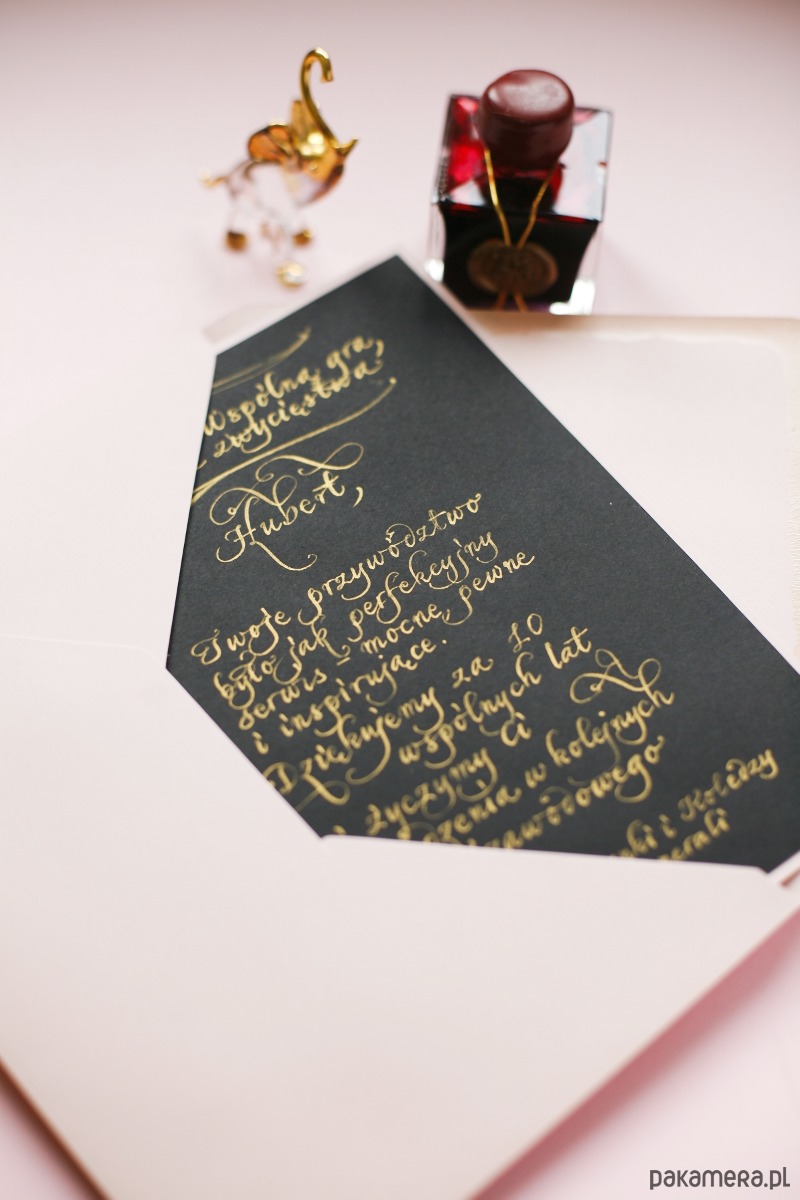 Wspólna gra,
zwycięstwa
Hubert,
Twoje przywództwo
było jak perfekcyjny
serwis – mocne, pewne
i inspirujące.
Dziękujemy za 10
wspólnych lat
i życzymy ci
w kolejnych
i Koledzy
pakamera.pl